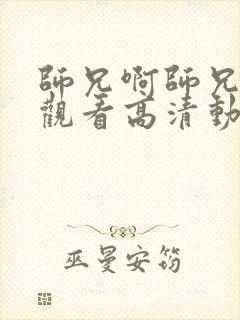 師兄啊師兄
觀看高清動
巫曼安筠